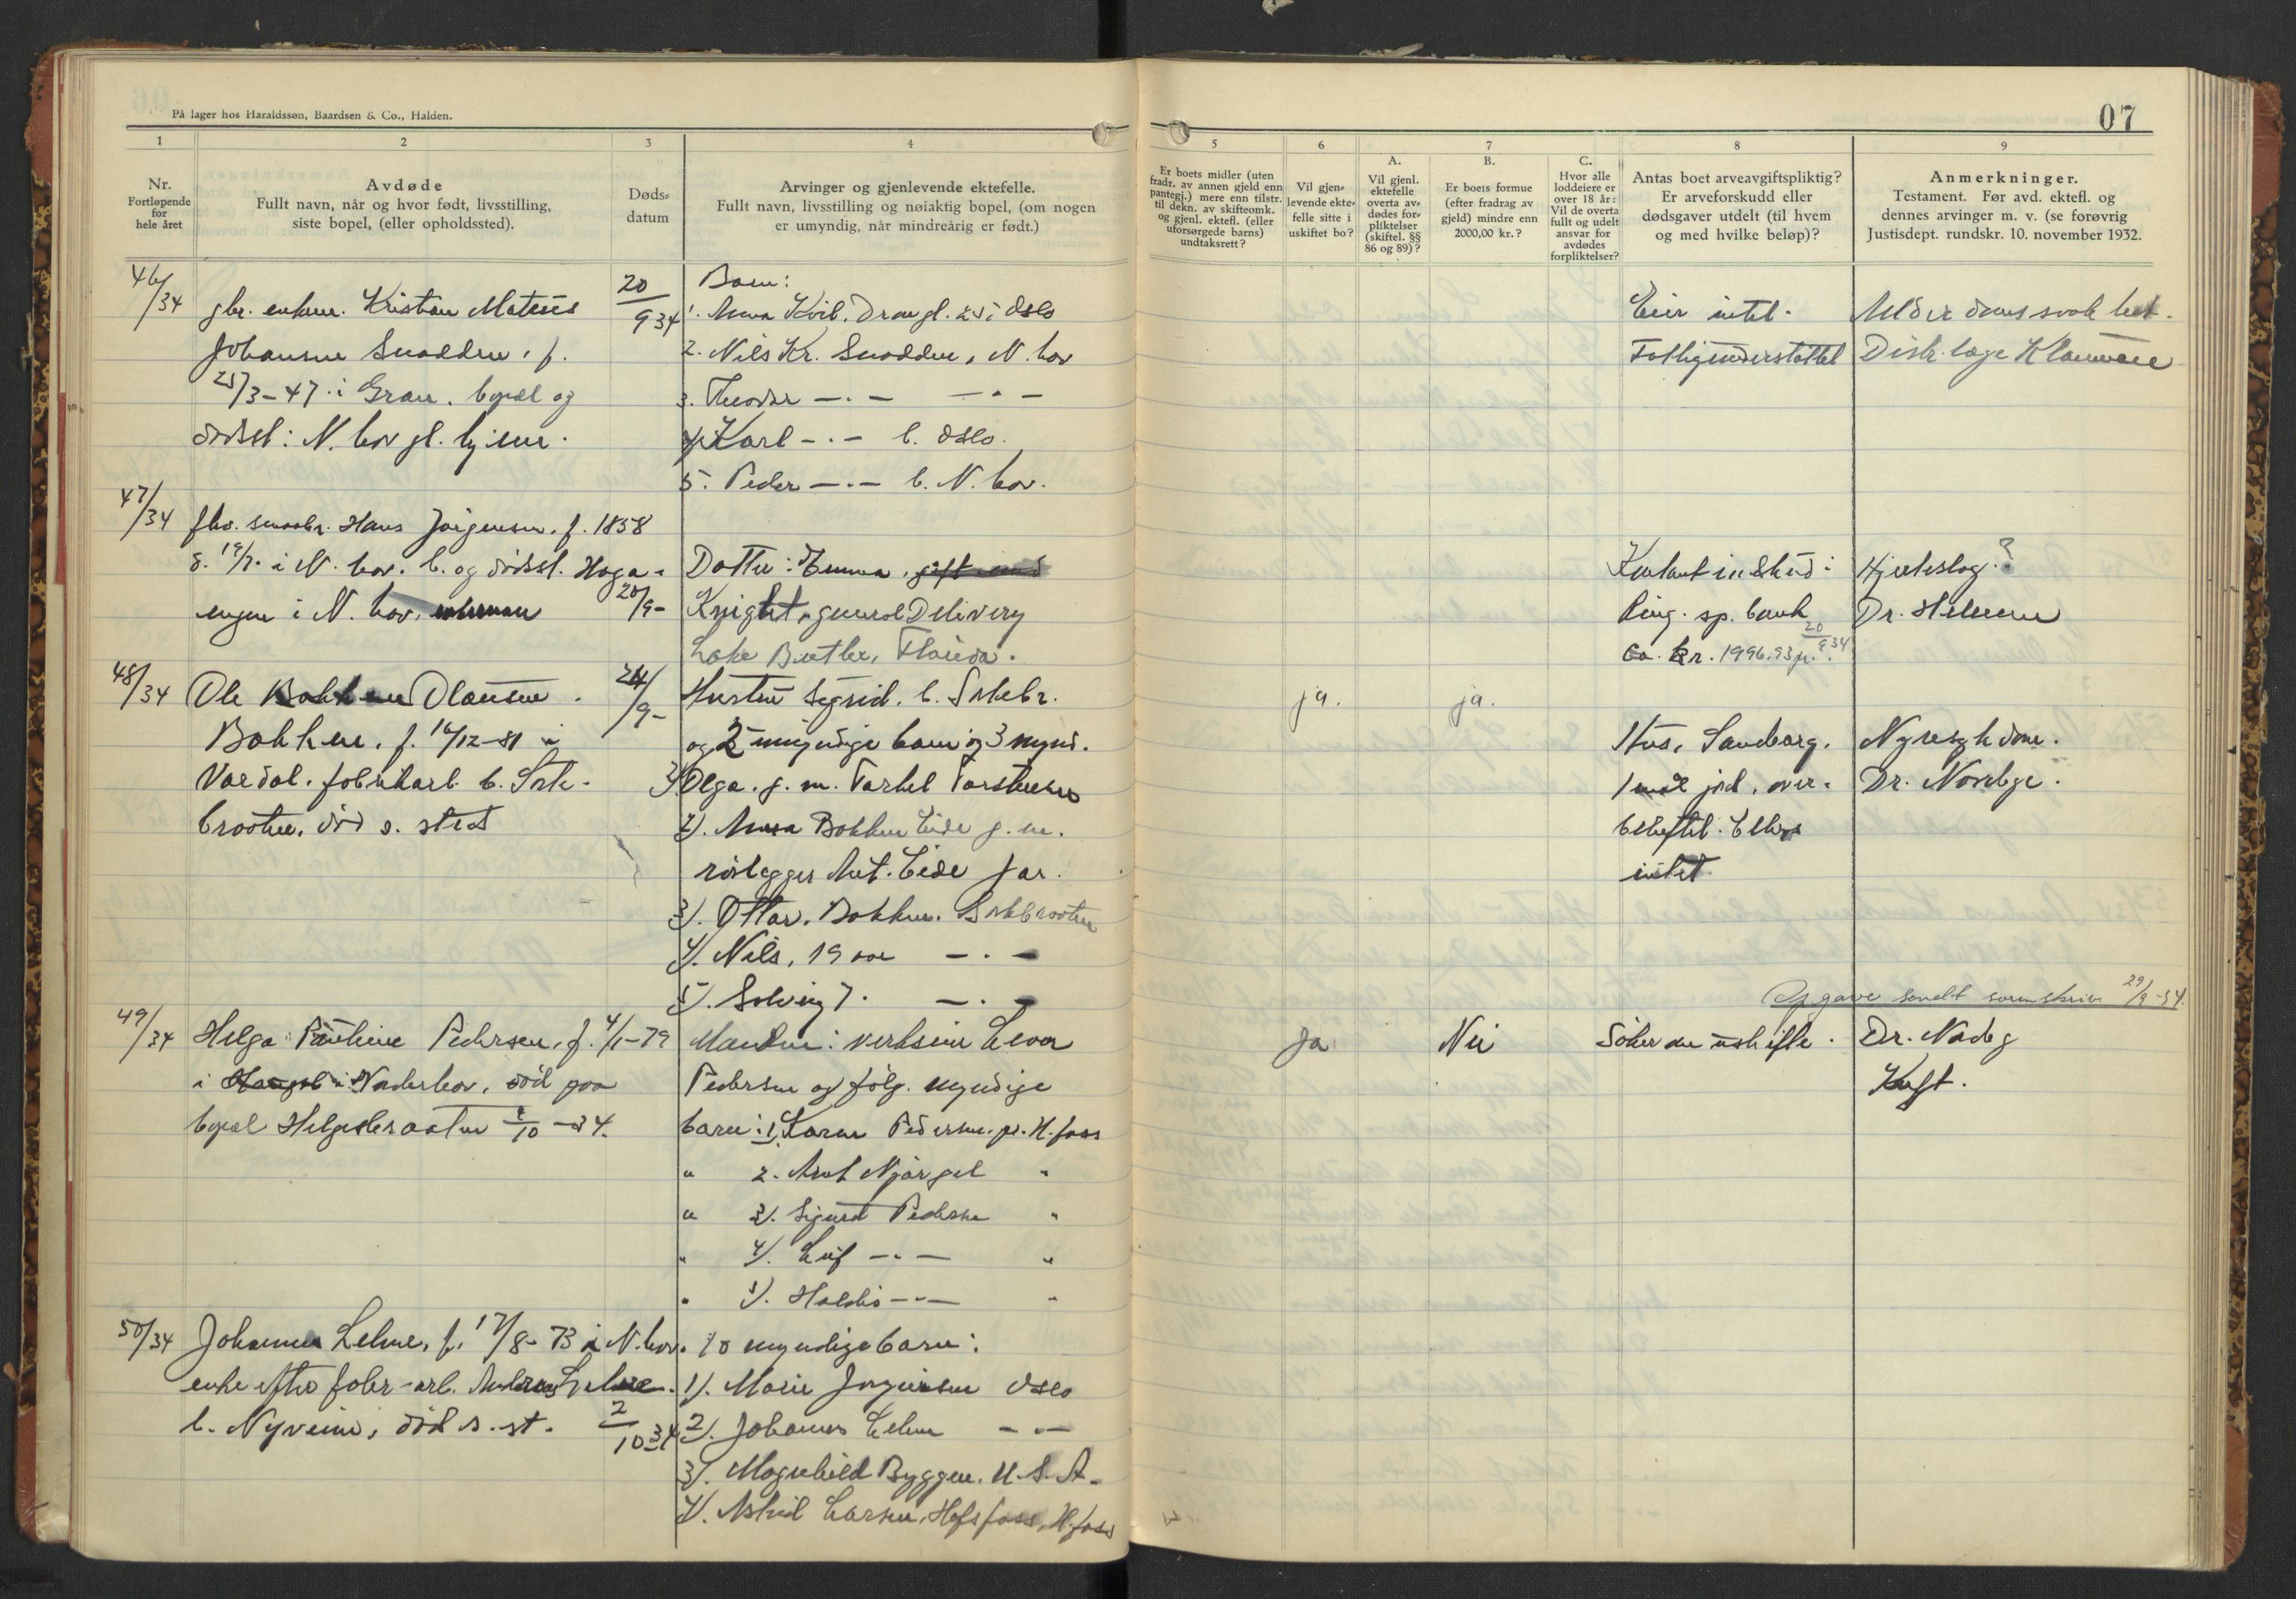 På lager hos Haraldssøn, Baardsen & Co., Halden.
07
1 2 3 4 5 6 7 8 9
Nr.
Fortløpende
for
hele året
Avdøde
Fullt navn, når og hvor født, livsstilling,
siste bopel, (eller opholdssted).
Døds-
datum
Arvinger og gjenlevende ektefelle.
Fullt navn, livsstilling og nøiaktig bopel, (om nogen
er umyndig, når mindreårig er født.)
Er boets midler (uten
fradr. av annen gjeld enn
pantegj.) mere enn tilstr.
til dekn. av skifteomk.
og gjenl. ektefl. (eller
uforsørgede barns)
undtaksrett?
Vil gjen-
levende ekte-
felle sitte i
uskiftet bo?
A.
Vil gjenl.
ektefelle
overta av-
dødes for-
pliktelser
(skiftel. §§
86 og 89)?
B.
Er boets formue
(efter fradrag av
gjeld) mindre enn
2000,00 kr.?
C.
Hvor alle
loddeiere er
over 18 år:
Vil de overta
fullt og udelt
ansvar for
avdødes
forpliktelser?
Antas boet arveavgiftspliktig?
Er arveforskudd eller
dødsgaver utdelt (til hvem
og med hvilke beløp)?
Anmerkninger.
Testament. Før avd. ektefl. og
dennes arvinger m. v. (se forøvrig
Justisdept. rundskr. 10. november 1932.
46/34
Kristian Mateus
Johansen
25/3-47 i Gran. bopæl og
dødsst: N. hov gl. hjem.
20/9 34
Barn:
1. Anna Oslo
2. Nils Kr. N. hov
3. Theodor -.- -.-
4. Karl -.- b. Oslo.
5. Peder -.- b. N. hov.
Eier intet.
Fattigunderstøttet
Distr. læge
47/34
Hans Jørgensen, f. 1858
d. 19/7. i N. hov. b. og dødsst. Haga-
engen i N. hov. enkeman
20/9-
Datter: Emma, gift med
Knight, general Delivery
Lake Butler, Florida.
Ring. sp. bank
ca. kr. 1996.93 pr. 20/9 34
Hjerteslag?
48/34
Ole Bakken Olausen
Bakken, f. 16/12-81 i
Vardal. fabrikarb. b.
braaten, død s. sted
24/9-
Hustru Sigrid. b.
og 2 umyndige barn og 3 mynd.
1. Olga. g. m.
2). Anna Bakken Eide g. m.
rørlegger Ant. Eide
3). Ottar. Bakken.
4). Nils, 19 aar -.-
5). Solveig 7. -.-
ja. ja.
Hus,
1 maal jord, over-
beheftet. Ellers
intet.
Nyresykdom.
Dr.
Opgave sendt sorenskriv. 29/9-34.
49/34
Helga Pauline Pedersen, f. 4/1-79
i Norderhov, død paa
bopæl Helgesbraaten /10-34.
Manden:
Pedersen og følg. myndige
barn: 1. Pedersen. pr. H.foss
" 2. "
" 3). Sigurd Pedersen "
" 4). Leif -.- "
" 5). Haldis -.- "
Ja Nei
Søker om uskifte.
Dr.
Kræft.
50/34
Johanne Lehne, f. 17/8-73 i N. hov.
enke efter fabr-arb. Andreas Lehne.
b. Nyveien, død s. st.
2/10 34
10 myndige barn:
1). Marie Jørgensen Oslo
2). Johannes Lehne -.-
3). Magnhild Byggen. U.S.A.
4). Astrid Larsen, Hofsfoss, H.foss